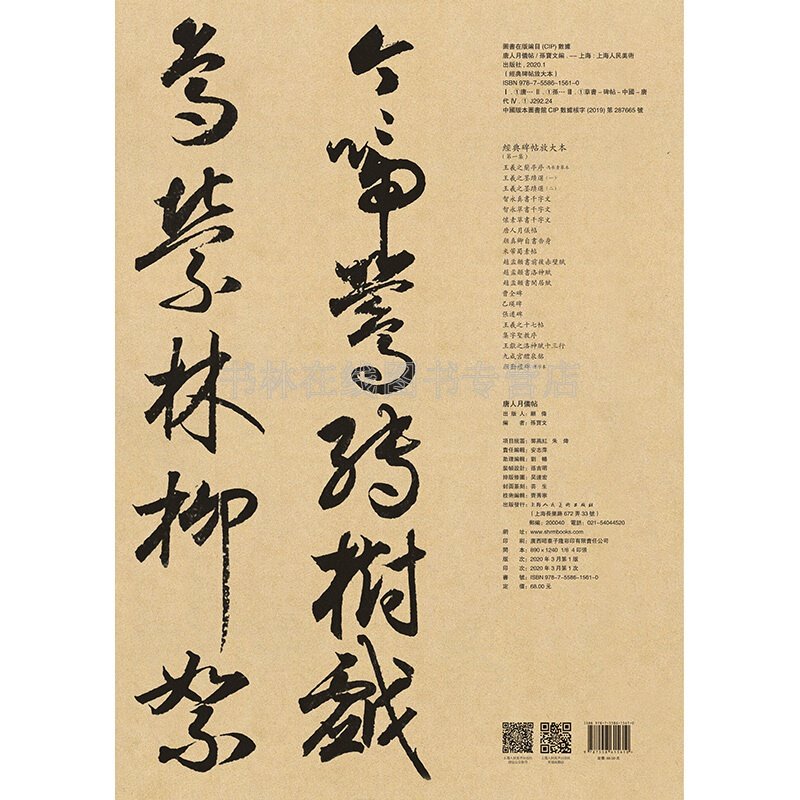 啼鶯轉樹戲
鳥縈林柳絮
圖書在版編目(CIP)數據
唐人月儀帖/孫寶文編.--上海:上海人民美術
出版社,2020.1
(經典碑帖放大本)
ISBN 978-7-5586-1561-0
Ⅰ.①唐… Ⅱ.①孫… Ⅲ.①草書-碑帖-中國-唐
代 Ⅳ.①J292.24
中國版本圖書館CIP數據核字(2019)第287665號
經典碑帖放大本
(第一集)
王羲之蘭亭序 馮承素摹本
王羲之墨蹟選(一)
王羲之墨蹟選(二)
智永真書千字文
智永草書千字文
懷素草書千字文
唐人月儀帖
顏真卿自書告身
米芾蜀素帖
趙孟頫書前後赤壁賦
趙孟頫書洛神賦
趙孟頫書閑居賦
曹全碑
乙瑛碑
張遷碑
王羲之十七帖
集字聖教序
王獻之洛神賦十三行
九成宮醴泉銘
顏勤禮碑
书林在线图书专营店
唐人月儀帖
出版人:顧偉
編者:孫寶文
項目統籌:鄭高紅 朱煒
責任編輯:安志萍
助理編輯:劉暢
裝幀設計:
排版修圖:吴達宏
封面篆刻:
技術編輯:齊秀寧
出版發行:上海人民美術出版社
(上海長樂路672弄33號)
郵編:200040 電話:021-54044520
網址:www.shrmbooks.com
印刷:廣西昭泰子隆彩印有限責任公司
開本:890×1240 1/8 4印張
版次:2020年3月第1版
印次:2020年3月第1次
書號:ISBN 978-7-5586-1561-0
定價:68.00元
ISBN 978-7-5586-1561-0
定價:68.00元